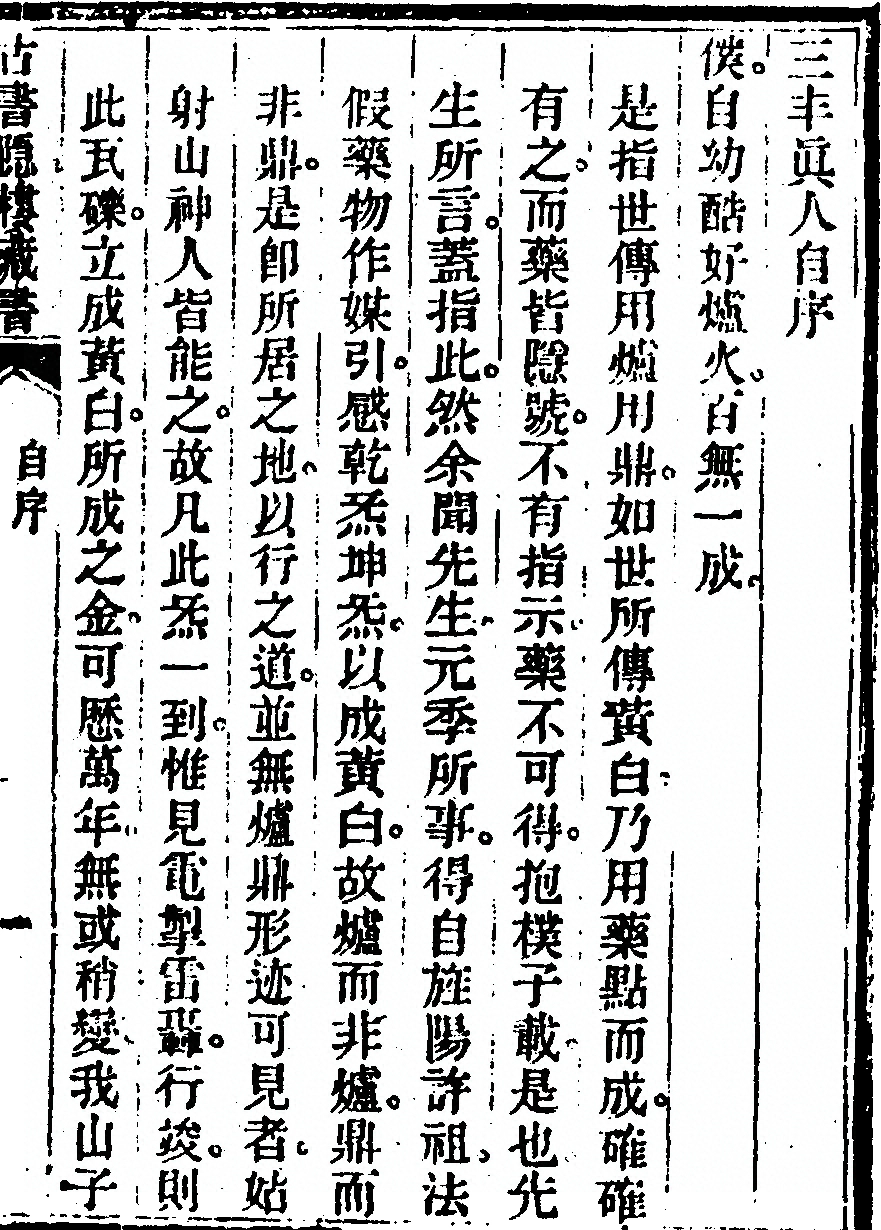 三丰眞人自序
僕。自幼酷好爐火。百無一成。
是指世傳用爐用鼎。如世所傳黃白。乃用藥點而成。確確
有之。而藥皆隱號。不有指示。藥不可得。抱樸子載。是也。先
生所言。蓋指此。然余聞先生。元季所事。得自旌陽許祖。法
假藥物作媒引。感乾炁坤炁。以成黃白。故爐而非爐。鼎而
非鼎。是卽所居之地。以行之道。並無爐鼎形迹可見者。姑
射山神人皆能之。故凡此炁一到。惟見電掣雷轟。行竣。則
此瓦礫。立成黃白。所成之金。可歷萬年。無或稍變。我山子
古書隱樓藏書
自序
一